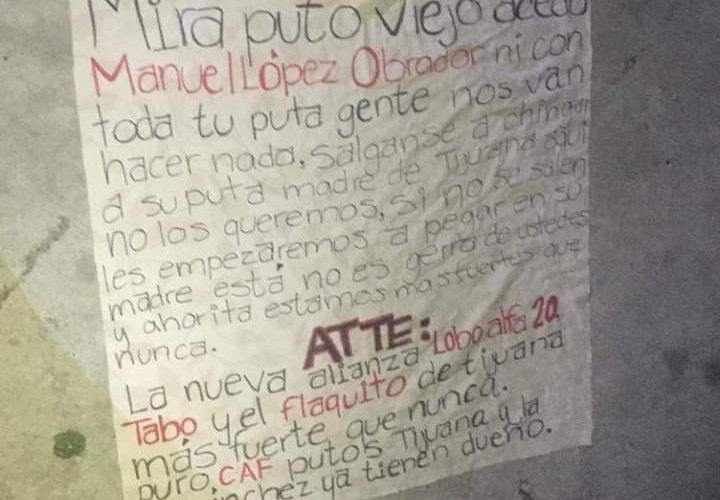 Mira puto viejo acedo
Manuel López Obrador ni con
toda tu puta gente nos van
hacer nada, salganse a chingar
a su puta madre de Tijuana aqui
no los queremos, si no se salen
les empezaremos a pegar en su
madre está no es gerra de ustedes
y ahorita estamos mas fuertes que
nunca.
ATTE:
La nueva alianza Lobo alfa 20
Tabo y el flaquito de tijuana
más fuerte que nunca.
puro CAF putos Tijuana y la
ya tienen dueño.